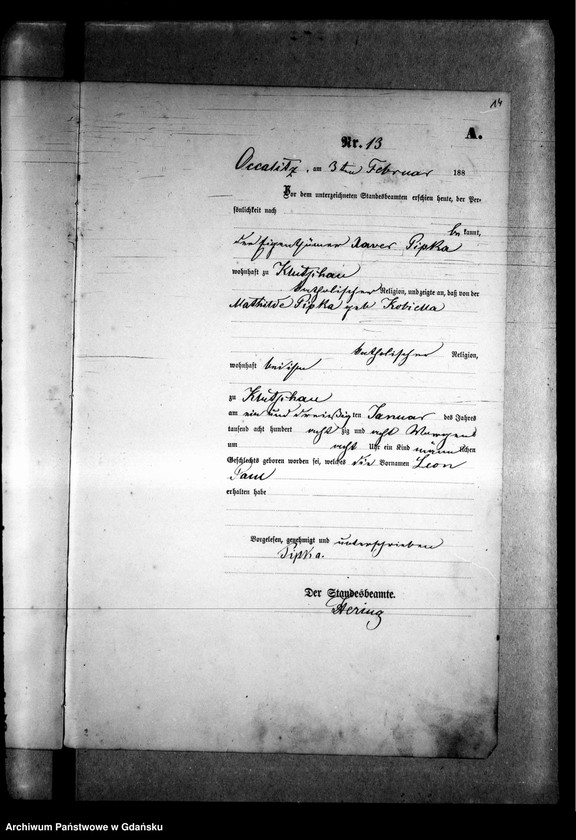 14
A.
Nr. 13
Occalitz, am 3ten Februar 188
Vor dem unterzeichneten Standesbeamten erschien heute, der Per-
sönlichkeit nach
be kannt,
der Eigenthümer Xaver Pipka
wohnhaft zu Klutschau
katholischer Religion, und zeigte an, daß von der
Mathilde Pipka geb Kobiella
katholischer Religion,
wohnhaft bei ihm
zu Klutschau
am ein und dreißigten Januar des Jahres
tausend acht hundert acht zig und acht Morgens
um acht Uhr ein Kind männlichen
Geschlechts geboren worden sei, welches die Vornamen Leon
Paul
erhalten habe
Vorgelesen, genehmigt und unterschrieben
Pipka.
Der Standesbeamte.
Hering
Archiwum Państwowe w Gdańsku